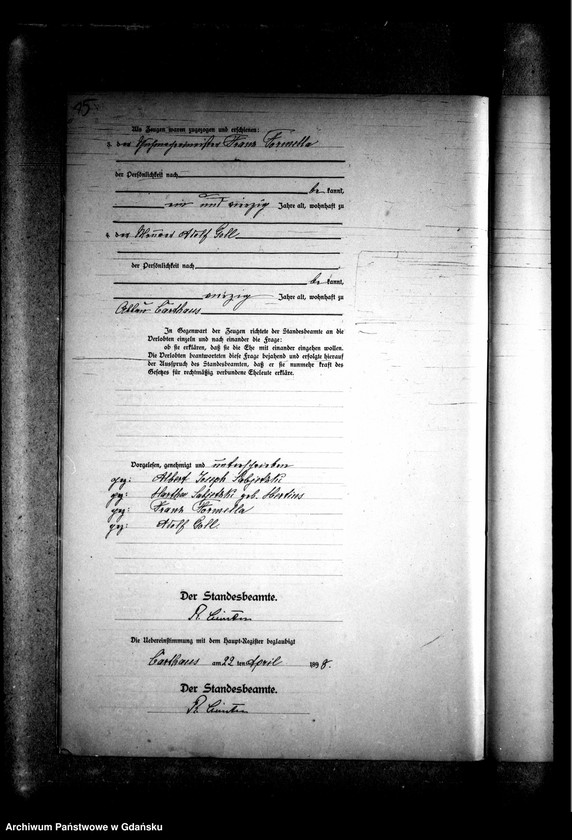 45
Als Zeugen waren zugezogen und erschienen:
der Franz Formella
der Persönlichkeit nach
be kannt,
ein und vierzig Jahre alt, wohnhaft zu
der Maurer Adolf
der Persönlichkeit nach
be kannt,
vierzig Jahre alt, wohnhaft zu
Carthaus
In Gegenwart der Zeugen richtete der Standesbeamte an die
Verlobten einzeln und nach einander die Frage:
ob sie erklären, daß sie die Ehe mit einander eingehen wollen.
Die Verlobten beantworteten diese Frage bejahend und erfolgte hierauf
der Ausspruch des Standesbeamten, daß er sie nunmehr kraft des
Gesetzes für rechtmäßig verbundene Eheleute erkläre.
Vorgelesen, genehmigt und unterschrieben
gez: Albert Joseph
gez: geb.
gez: Franz Formella
gez: Adolf
Der Standesbeamte.
R.
Die Uebereinstimmung mit dem Haupt-Register beglaubigt
Carthaus am 22 ten April 1898.
Der Standesbeamte.
R.
Archiwum Państwowe w Gdańsku